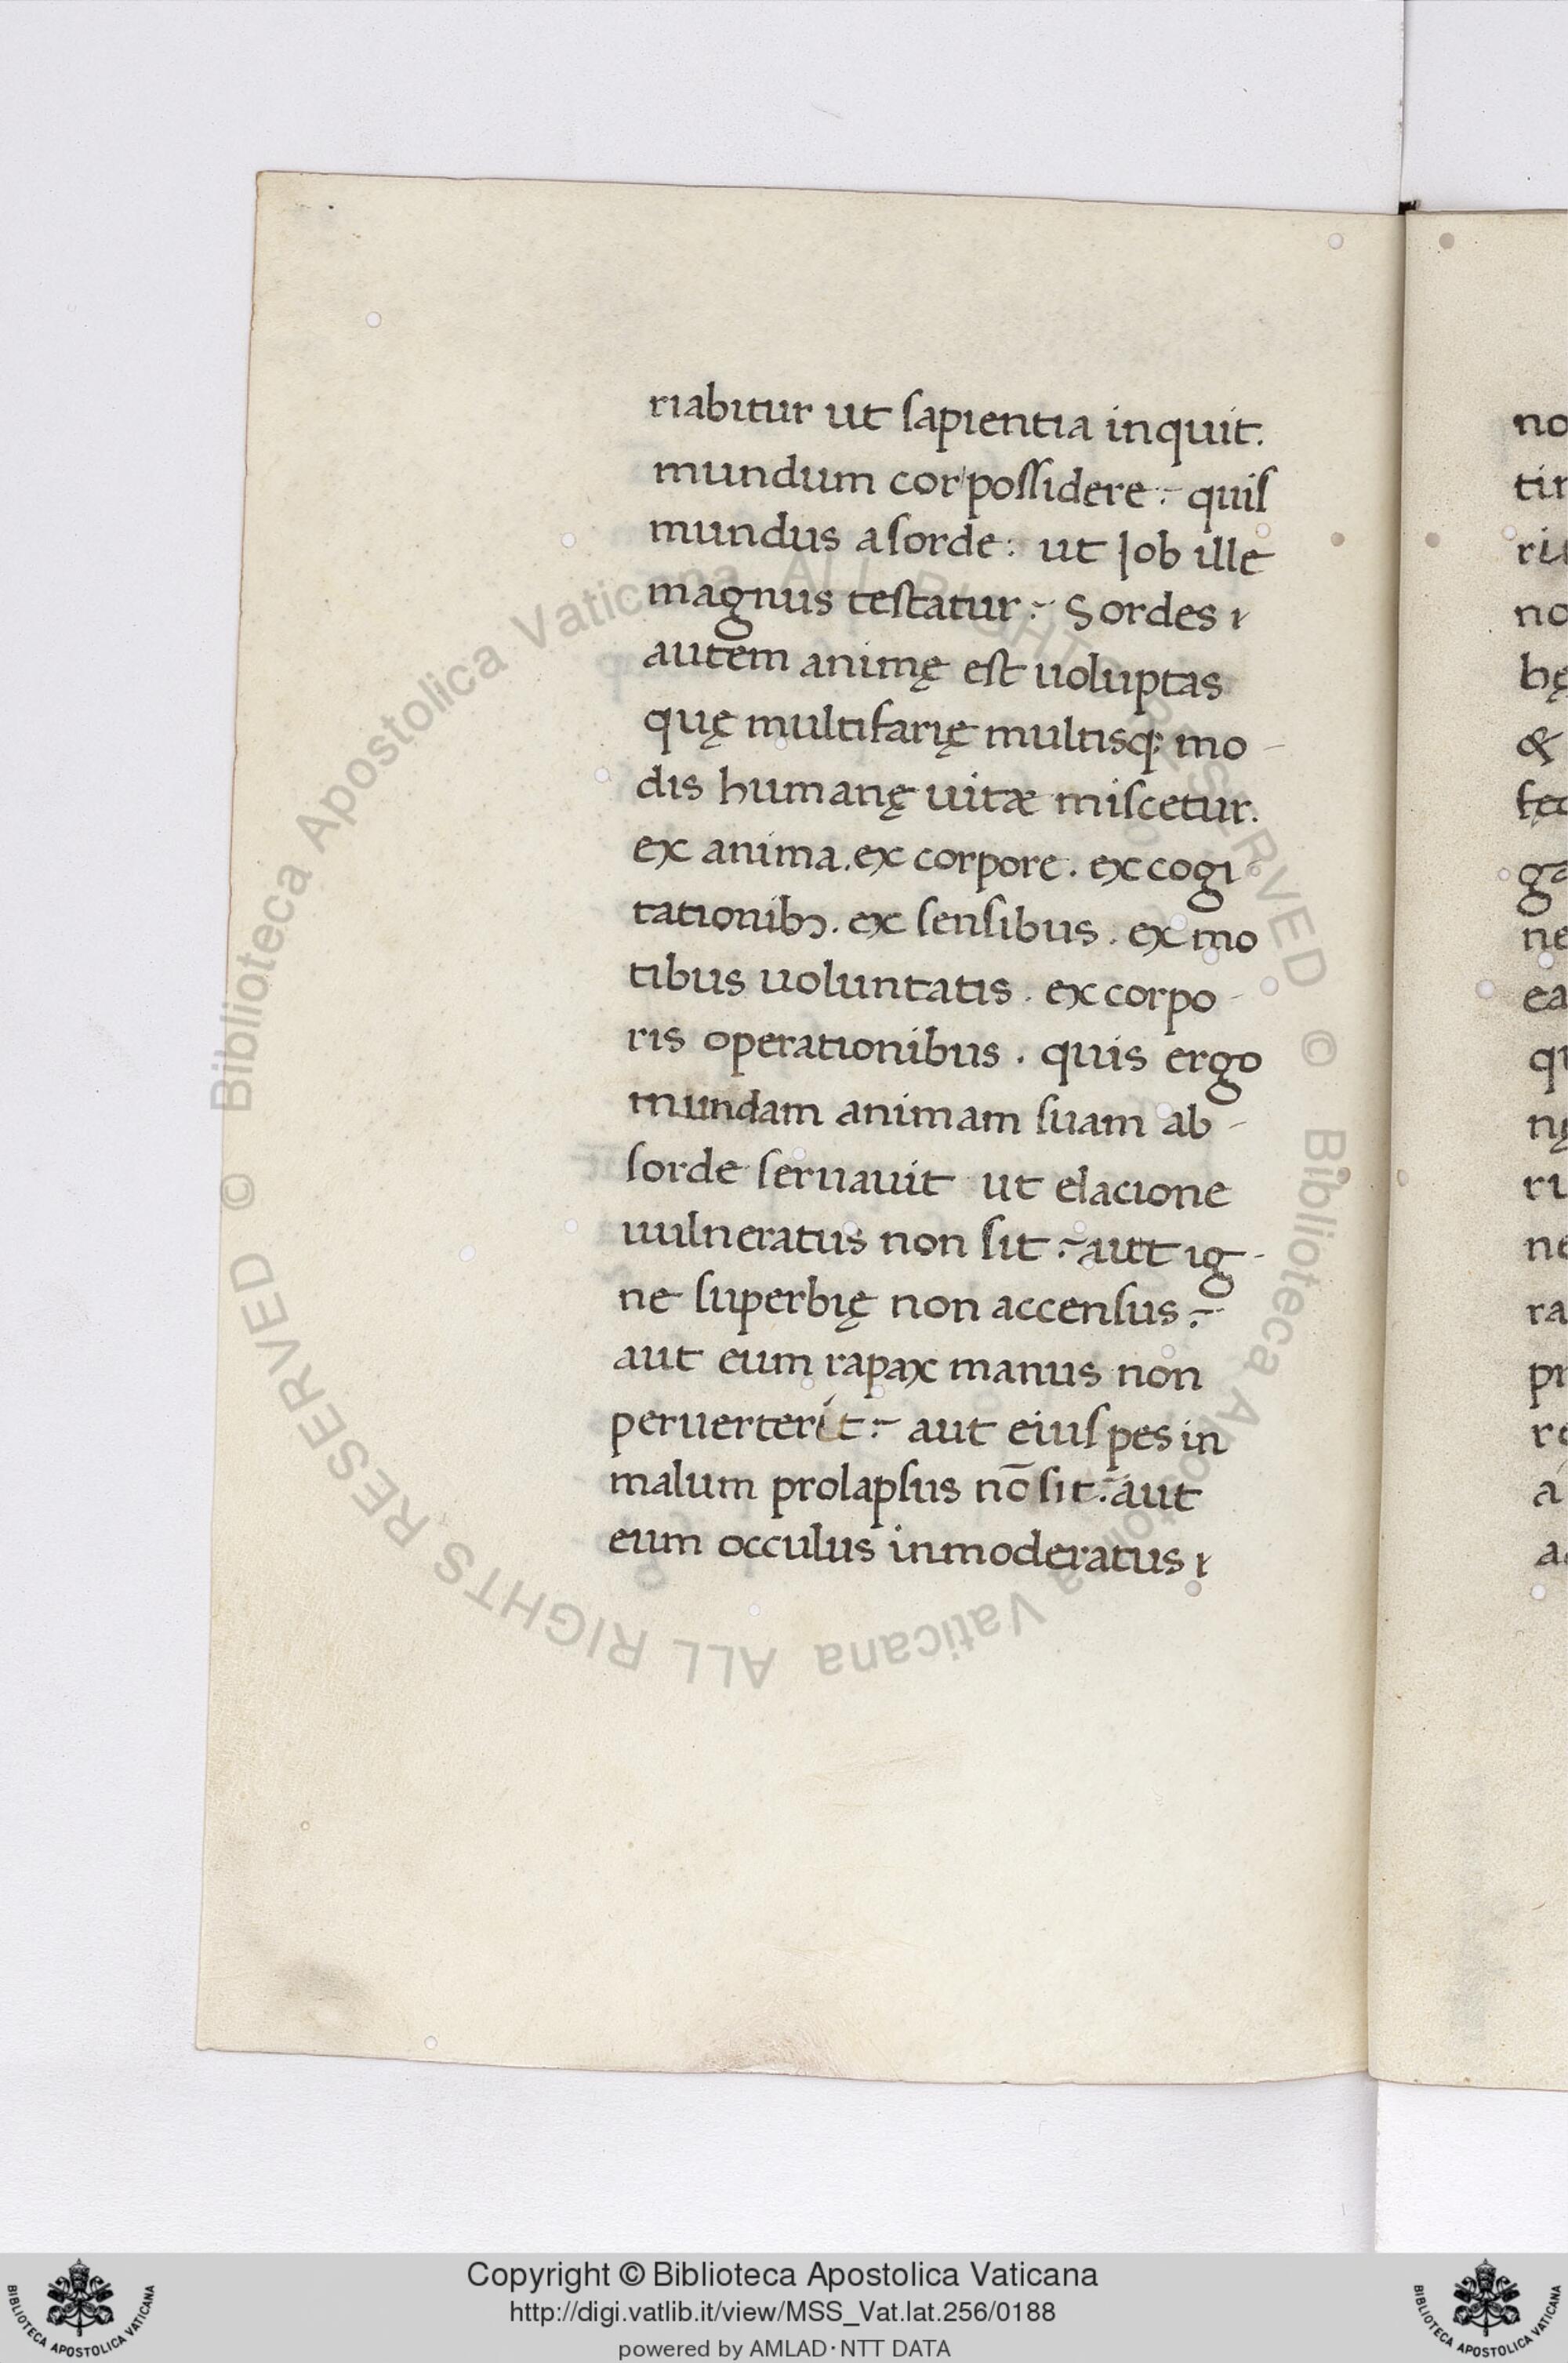 riabitur ut ſapientia inquit.
mundum cor poſſidere :- quiſ
mundus a ſorde : ut Job ille
magnus teſtatur :- Sordes ι
autem animę eſt uoluptas
quę multifarię multisq; mo-
dis humanę uitæ miſcetur.
ex anima. ex corpore. ex cogi-
tationibꝫ. ex ſenſibus. ex mo
tibus uoluntatis. ex corpo-
ris operationibus. quis ergo
mundam animam ſuam ab-
ſorde ſeruauit ut elacione
uulneratus non ſit :- aut ig-
ne ſuperbię non accenſus :-
aut eum rapax manus non
peruerterit :- aut eiuſ pes in
malum prolapſus nō ſit :- aut
eum occulus inmoderatus ι
no
tin
no
bę
&
fęc
ga
ne
ea
qu
ne
ra
pr
a
Biblioteca Apostolica Vaticana ALL RIGHTS RESERVED ©
Biblioteca Apostolica Vaticana ALL RIGHTS RESERVED ©
Copyright © Biblioteca Apostolica Vaticana
http://digi.vatlib.it/view/MSS_Vat.lat.256/0188
powered by AMLAD · NTT DATA
BIBLIOTECA APOSTOLICA VATICANA
BIBLIOTECA APOSTOLICA VATICANA